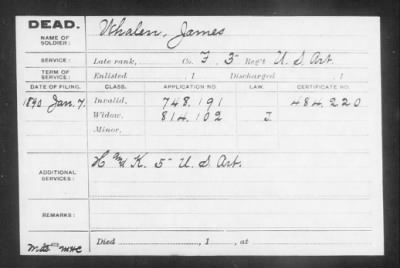 DEAD.
NAME OF SOLDIER: Whalen, James
SERVICE: Late rank, Co. F, 5" Reg't U.S. Art.
TERM OF SERVICE: Enlisted , 1 Discharged , 1
DATE OF FILING. CLASS. APPLICATION NO. LAW. CERTIFICATE NO.
1890 Jan. 7. Invalid, 748.191 484.220
Widow, 814.102
Minor,
ADDITIONAL SERVICES: K. 5" U.S. Art.
REMARKS:
Died , 1 , at